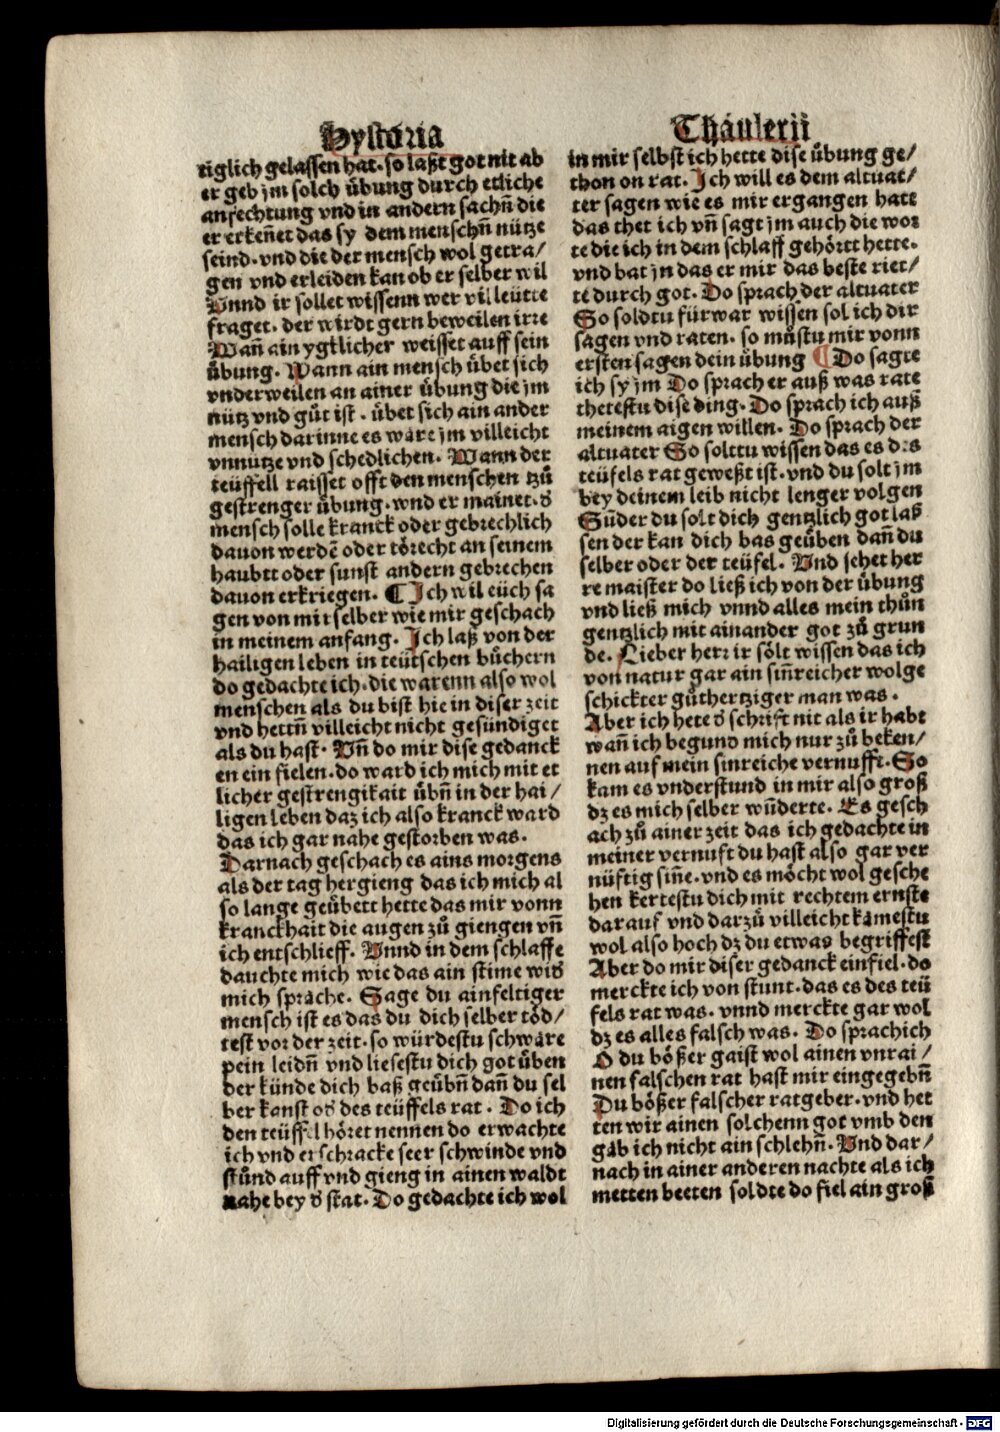 Hystoria
tiglich gelassen hat. so laßt got nit ab
er geb jm solch übung durch etliche
anfechtung vnd in andern sachn̄ die
er erkeñet das sy dem menschn̄ nütze
seind. vnd die der mensch wol getra/
gen vnd erleiden kan ob er selber wil
Unnd ir sollet wissenn wer vil leütte
fraget. der wirdt gern beweilen irre
Wañ ain ygtlicher weisset auff sein
übung. Wann ain mensch übet sich
vnderweilen an ainer übung die jm
nütz vnd gůt ist. übet sich ain ander
mensch darinne es wäre jm villeicht
vnnutze vnd schedlichen. Wann der
teüffell raisset offt den menschen tzů
gestrenger übung. wnd er mainet. d̄
mensch solle kranck oder gebrechlich
dauon werdē oder törecht an seinem
haubtt oder sunst andern gebrechen
dauon erkriegen. ¶ Ich wil eüch sa
gen von mir selber wie mir geschach
in meinem anfang. Ich laß von der
hailigen leben in teütschen bůchern
do gedachte ich. die warenn also wol
menschen als du bist hie in diser zeit
vnd hettn̄ villeicht nicht gesündiget
als du hast. Vñ do mir dise gedanck
en ein fielen. do ward ich mich mit et
licher gestrengikait übn̄ in der hai/
ligen leben daz ich also kranck ward
das ich gar nahe gestorben was.
Darnach geschach es ains morgens
als der tag hergieng das ich mich al
so lange geübett hette das mir vonn
kranckhait die augen zů giengen vñ
ich entschlieff. Vnnd in dem schlaffe
dauchte mich wie das ain stime wid̄
mich spräche. Sage du ainfeltiger
mensch ist es das du dich selber töd/
test vor der zeit. so würdestu schwäre
pein leidn̄ vnd liesestu dich got üben
der künde dich baß geübn̄ dañ du sel
ber kanst od̄ des teüffels rat. Do ich
den teüffel höret nennen do erwachte
ich vnd erschracke seer schwinde vnd
stůnd auff vnd gieng in ainen waldt
nahe bey d̄ stat. Do gedachte ich wol
Thäulerii
in mir selbst ich hette dise übung ge/
thon on rat. Ich will es dem altuat/
ter sagen wie es mir ergangen hatt
das thet ich vñ sagt jm auch die wor
te die ich in dem schlaff gehörtt hette.
vnd bat jn das er mir das beste riet/
te durch got. Do sprach der altuater
So soldtu fürwar wissen sol ich dir
sagen vnd raten. so můstu mir vonn
ersten sagen dein übung ¶ Do sagte
ich sy jm Do sprach er auß was rate
thetestu dise ding. Do sprach ich auß
meinem aigen willen. Do sprach der
altuater So solttu wissen das es des
teüfels rat geweßt ist. vnd du solt jm
bey deinem leib nicht lenger volgen
Sūder du solt dich gentzlich got laß
sen der kan dich bas geüben dañ du
selber oder der teüfel. Vnd sehet her
re maister do ließ ich von der übung
vnd ließ mich vnnd alles mein thůn
gentzlich mit ainander got zů grun
de. Lieber herr ir sölt wissen das ich
von natur gar ain siñreicher wolge
schickter gůthertziger man was.
Aber ich hete d̄ schrift nit als ir habt
wañ ich begund mich nur zů beken/
nen auf mein sinreiche vernufft. So
kam es vnderstund in mir also groß
dz es mich selber wūderte. Es gesch
ach zů ainer zeit das ich gedachte in
meiner vernuft du hast also gar ver
nüftig siñe. vnd es möcht wol gesche
hen kertestu dich mit rechtem ernste
darauf vnd darzů villeicht kämestu
wol also hoch dz du etwas begriffest
Aber do mir diser gedanck einfiel. do
merckte ich von stunt. das es des teü
fels rat was. vnnd merckte gar wol
dz es alles falsch was. Do sprach ich
O du bößer gaist wol ainen vnrai/
nen falschen rat hast mir eingegebn̄
Du bößer falscher ratgeber. vnd het
ten wir ainen solchenn got vmb den
gäb ich nicht ain schlehn̄. Vnd dar/
nach in ainer anderen nachte als ich
metten beeten soldte do fiel ain groß
Digitalisierung gefördert durch die Deutsche Forschungsgemeinschaft - DFG